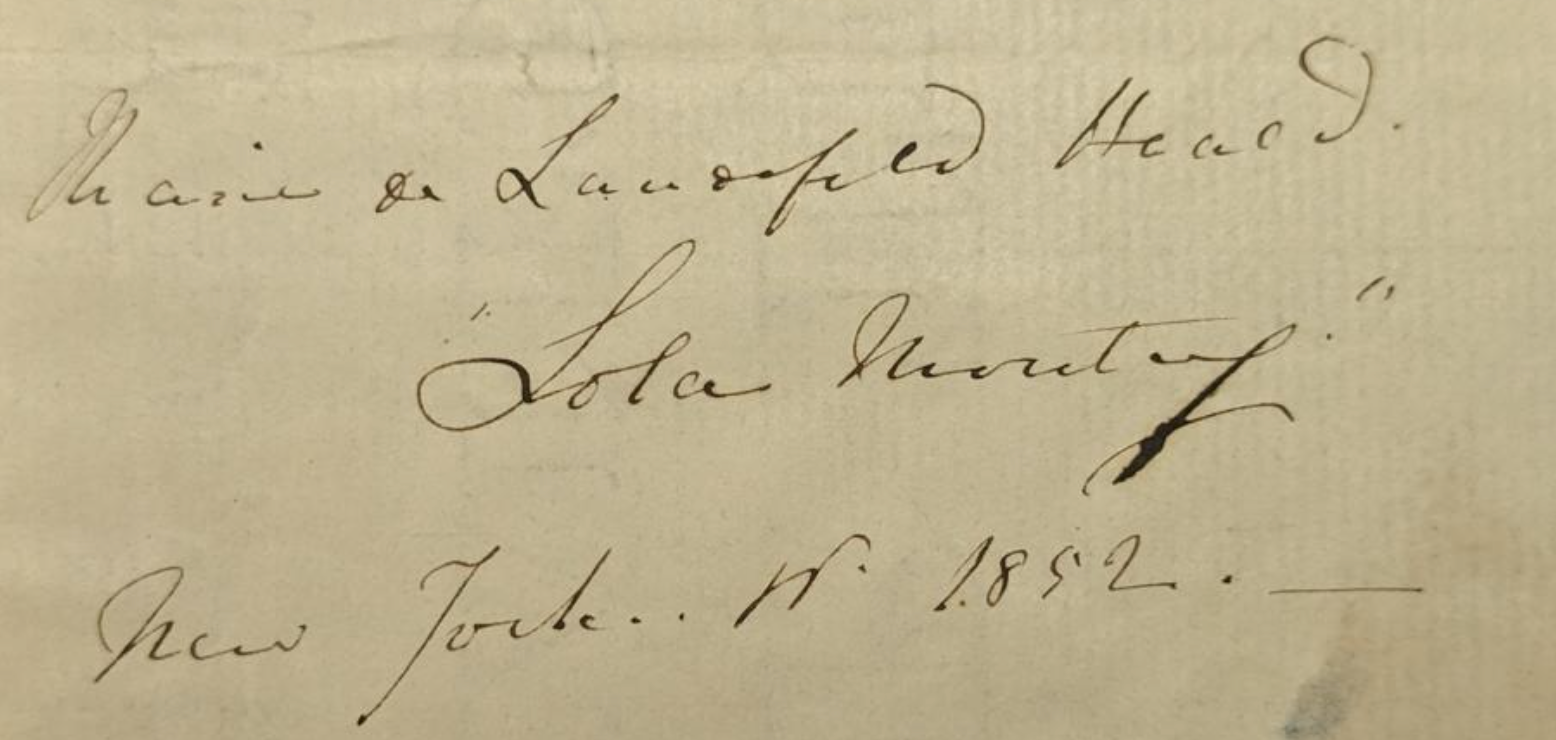 Marie de Landsfeld Heald.
"Lola Montez."
New York.. 1852. —